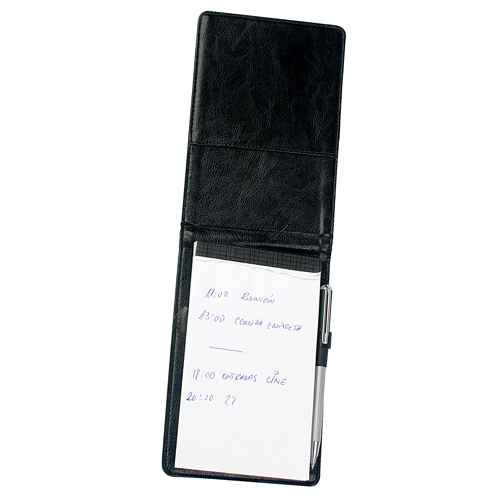 11:00 REUNIÓN
13:00 COMIDA EMPRESA
18:00 ENTRADAS CINE
20:00 ??